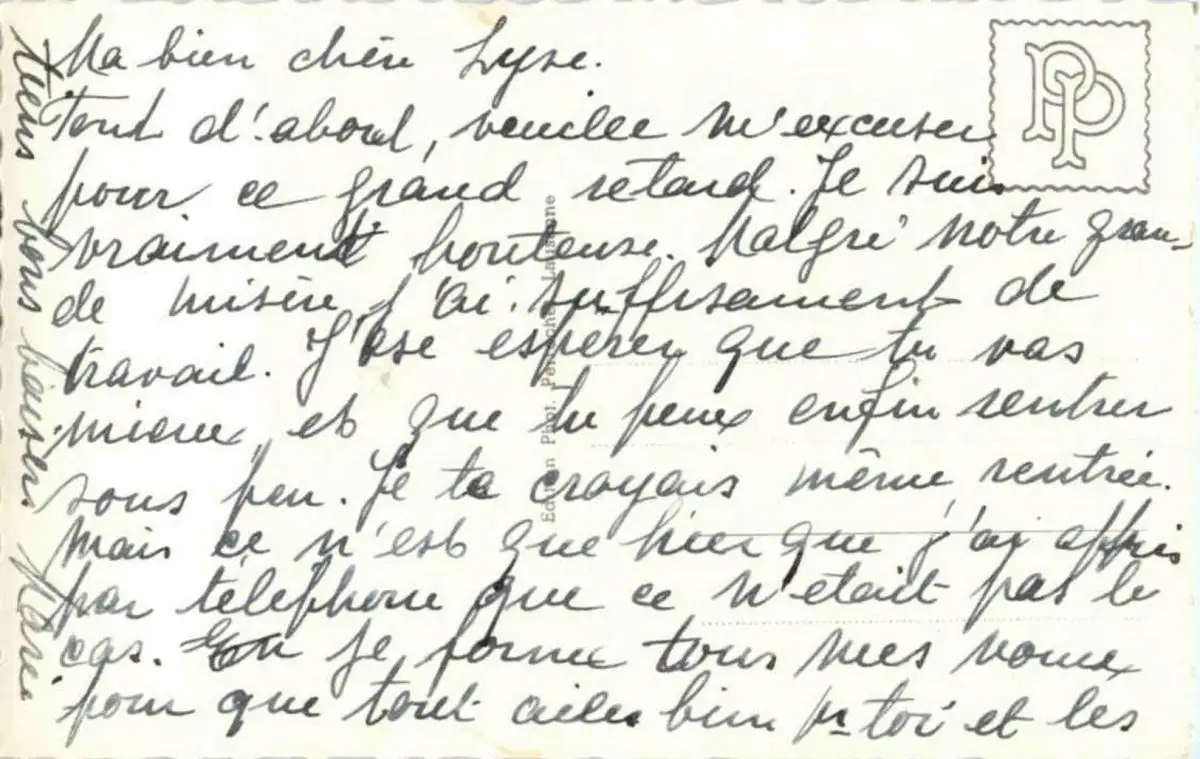 Ma bien chère Lyse.
Tout d'abord, veuillee m'excuser
pour ce grand retard. Je suis
vraiment honteuse. Malgré notre gran-
de misère, j'ai suffisament de
travail. J'ose espérer que tu vas
mieux et que tu peux enfin rentrer
sous peu. Je te croyais même rentrée.
Mais ce n'est que hier que j'ai appris
par téléphone que ce n'etait pas le
cas. En Je forme tous mes voeux
pour que tout aille bien pr toi et les
tiens vous baisers Marie
PP
Edition Phot. Perroche Lausanne